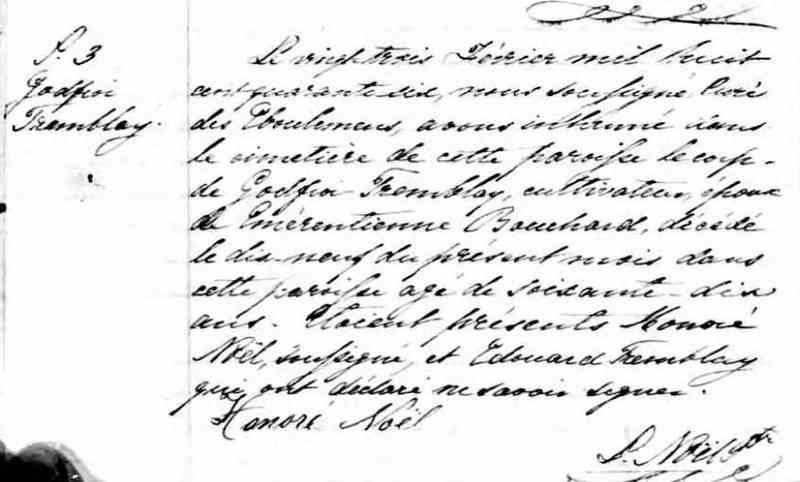 S. 3
Godfroi
Tremblay.
Le vingt trois Février mil huit
cent quarante six, nous soussigné, Curé
des Eboulemens, avons inhumé dans
le cimetière de cette paroisse le corp-
de Godfroi Tremblay, cultivateur, époux
de Emérentienne Bouchard, décédé
le dix-neuf du présent mois dans
cette paroisse agé de soixante-dix
ans. Etoient présents Honoré
Noël, soussigné, et Edouard Tremblay
qui ont déclaré ne savoir signer.
Honoré Noël
L. Noël Ptr